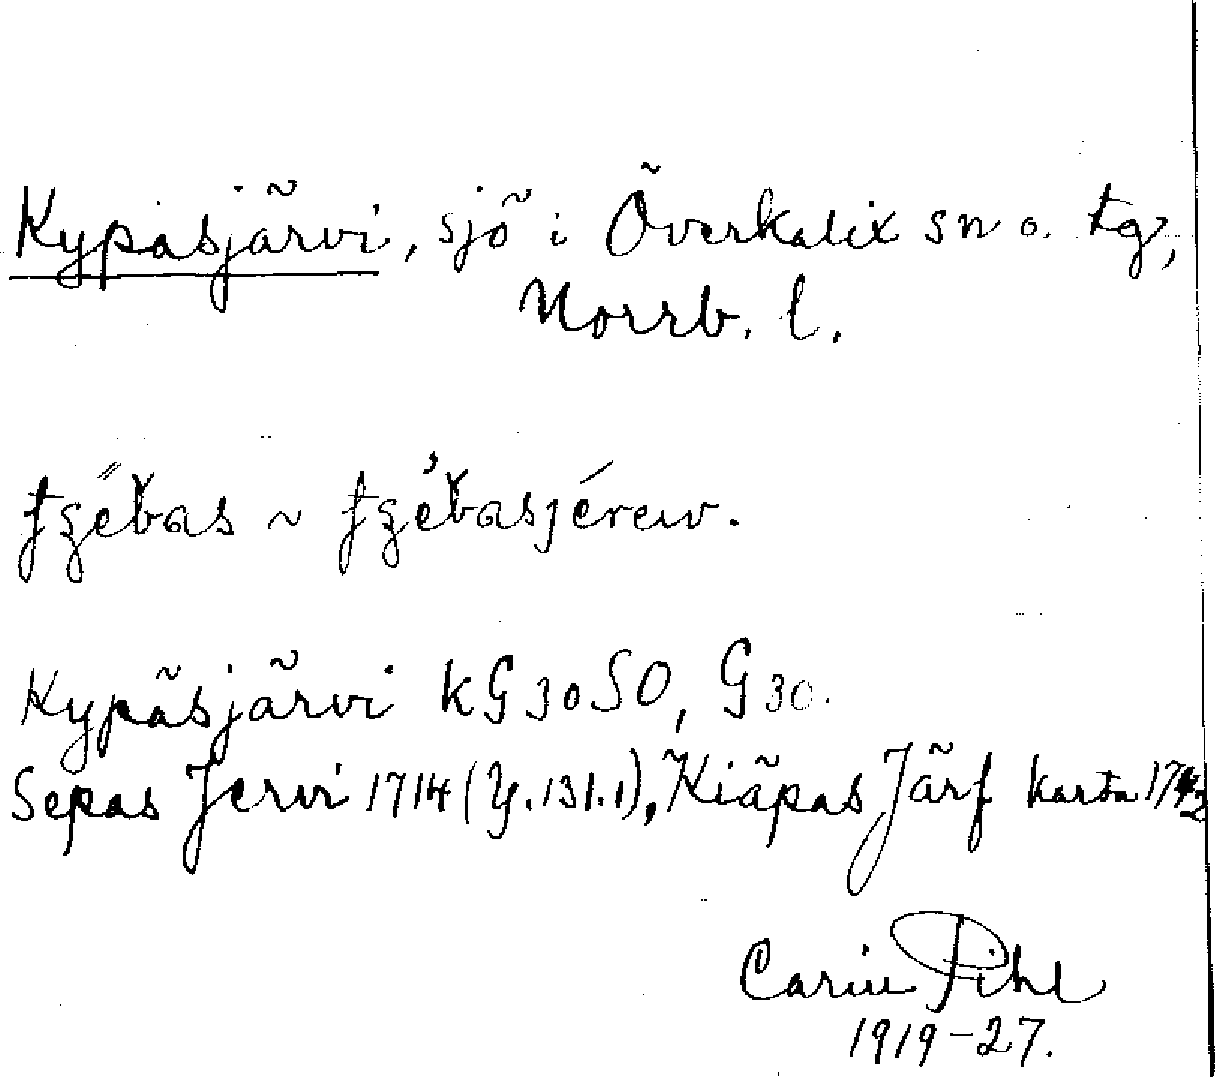 Kypasjärvi, sjö i Överkalix sn o. tg,
Norrb. l.
Kypäsjärvi kG30SO, G30.
Sepas Jervi 1714 (Y.131.1), Kiäpas Järf karta
Carin Pihl
1919-27.